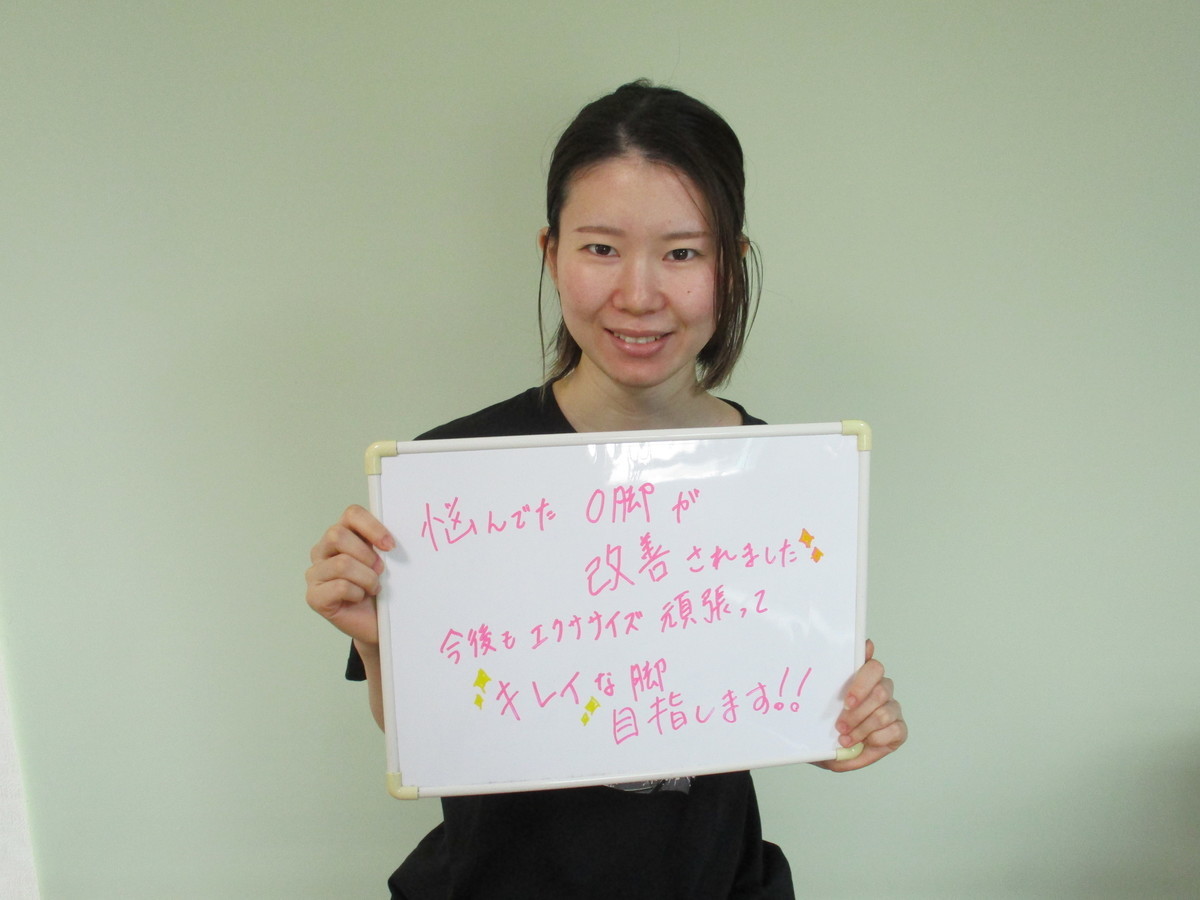 悩んでた O脚が
改善されました
今後も エクササイズ 頑張って
キレイな脚
目指します!!